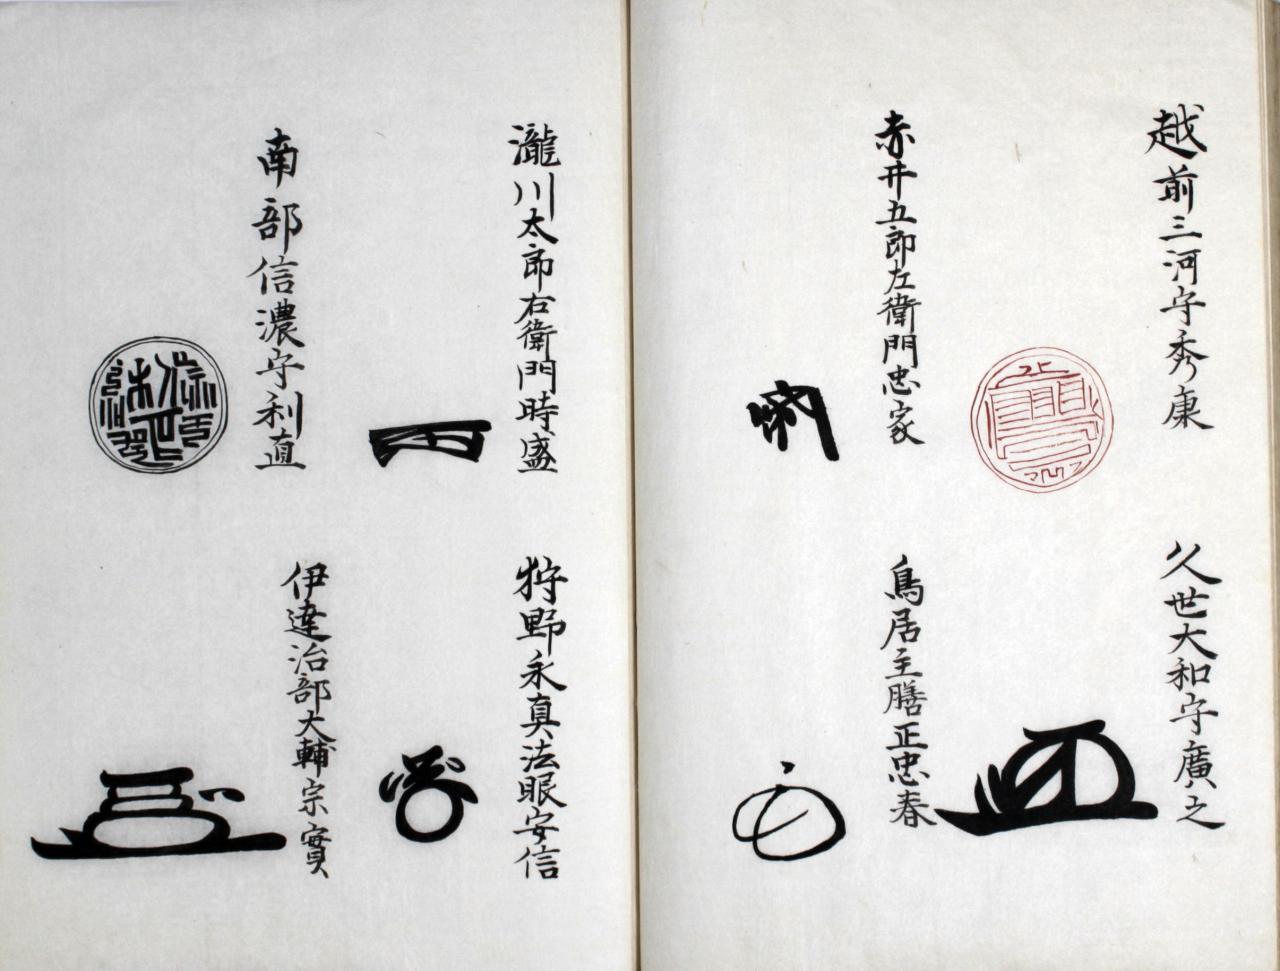 越前三河守秀康
久世大和守廣之
赤井五郎左衛門忠家
鳥居主膳正忠春
瀧川太郎右衛門時盛
狩野永真法眼安信
南部信濃守利直
伊達治部大輔宗實